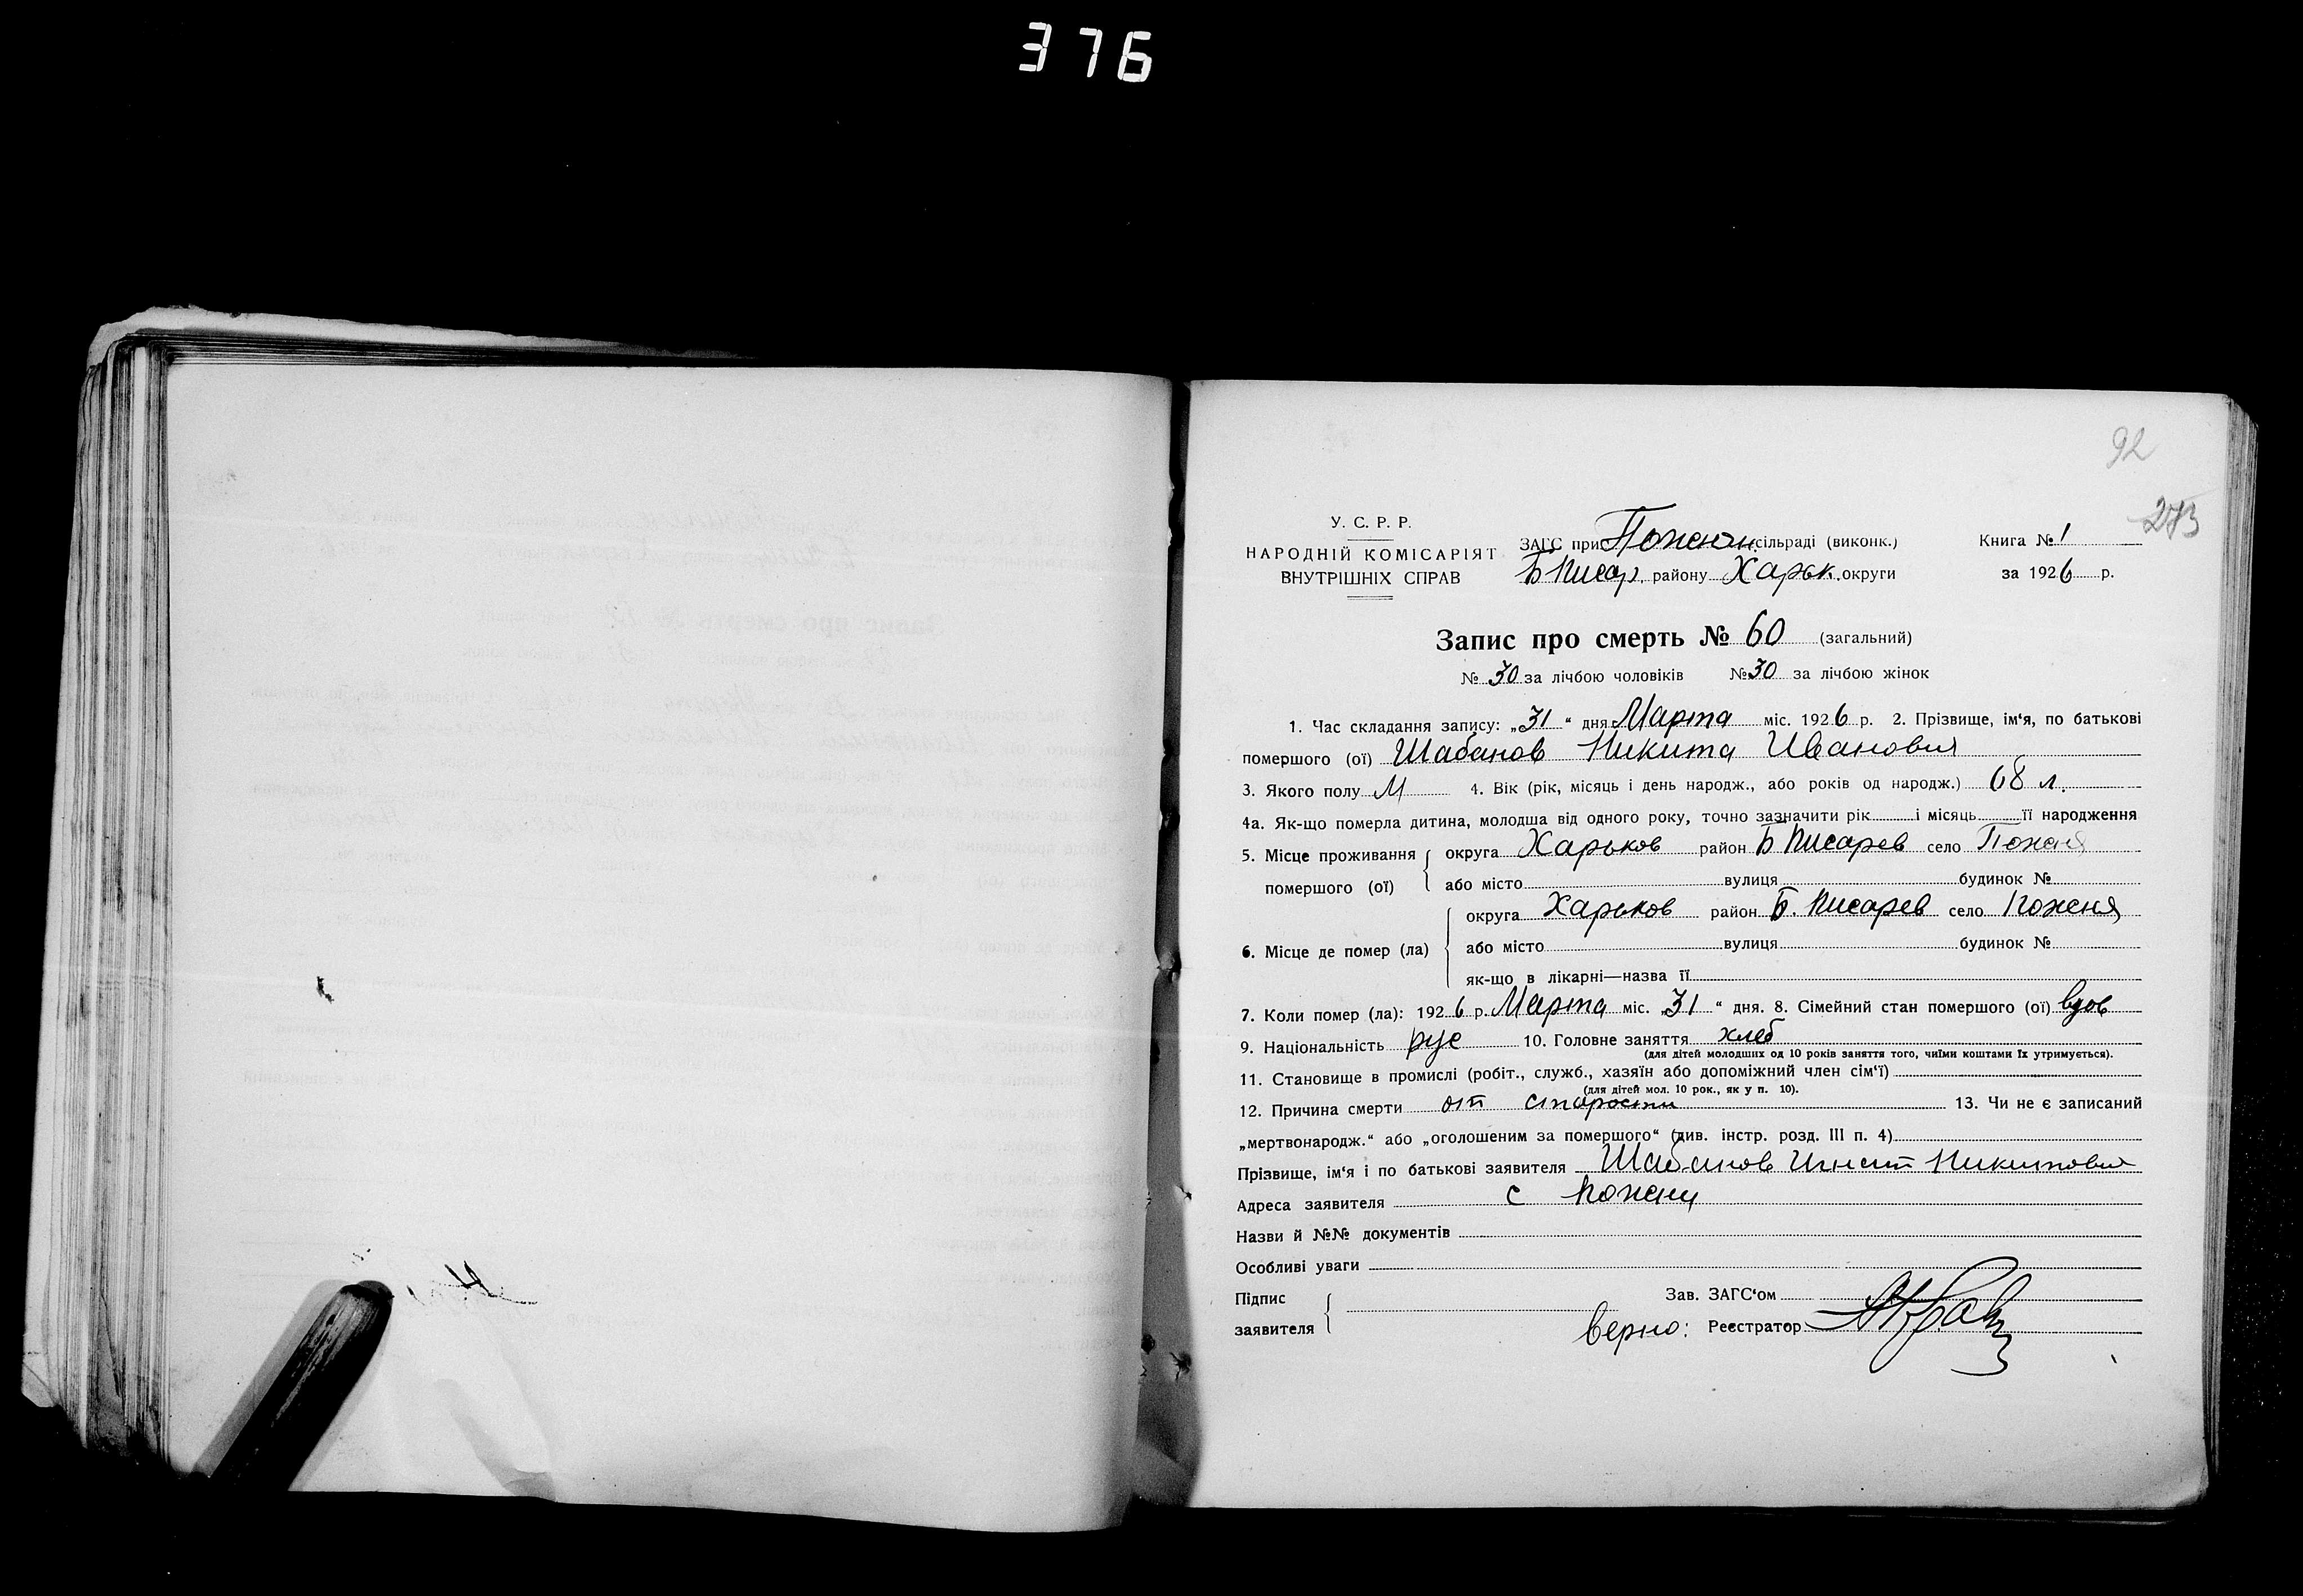 376
92
273
У. С. Р. Р.
НАРОДНІЙ КОМІСАРІЯТ
ВНУТРІШНІХ СПРАВ
ЗАГС при Пожнян. сільраді (виконк.)
Б Писар. району Харьк. округи
Книга № 1
за 1926 р.
Запис про смерть № 60 (загальний)
№ 30 за лічбою чоловіків № 30 за лічбою жінок
1. Час складання запису: „31“ дня Марта міс. 1926 р. 2. Прізвище, ім'я, по батькові
помершого (ої) Шабанов Никита Иванович
3. Якого полу М 4. Вік (рік, місяць і день народж., або років од народж.) 68 л.
4а. Як-що померла дитина, молодша від одного року, точно зазначити рік і місяць її народження
5. Місце проживання помершого (ої) округа Харьков район Б Писарев село Пожня
або місто вулиця будинок №
6. Місце де помер (ла) округа Харьков район Б. Писарев село Пожня
або місто вулиця будинок №
як-що в лікарні—назва її
7. Коли помер (ла): 1926 р. Марта міс. „31“ дня. 8. Сімейний стан помершого (ої) вдов
9. Національність рус 10. Головне заняття хлеб
(для дітей молодших од 10 років заняття того, чиїми коштами їх утримується).
11. Становище в промислі (робіт., служб., хазяїн або допоміжний член сім'ї)
(для дітей мол. 10 рок., як у п. 10).
12. Причина смерти от старости 13. Чи не є записаний
„мертвонародж.“ або „оголошеним за помершого“ (див. інстр. розд. III п. 4)
Прізвище, ім'я і по батькові заявителя Шабанов Игнат Никитович
Адреса заявителя с Пожни
Назви й №№ документів
Особливі уваги
Підпис заявителя
Зав. ЗАГС'ом
верно: Реєстратор